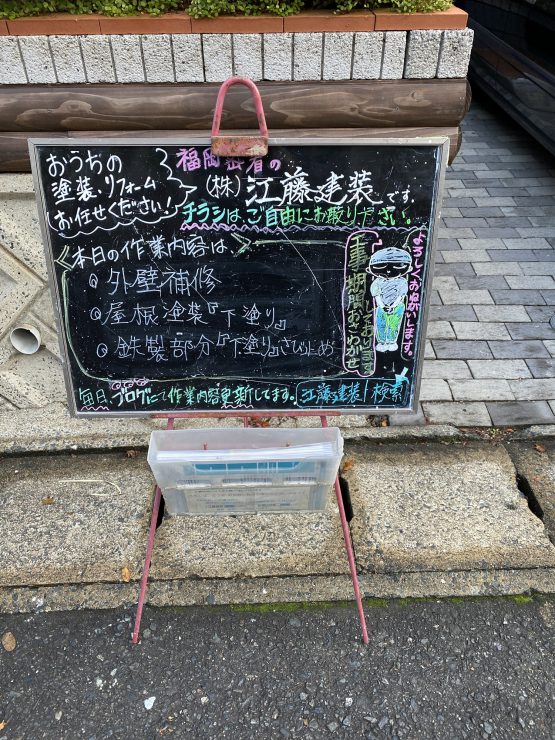 おうちの
塗装、リフォーム
お任せください!
福岡密着の
(株)江藤建装です。
チラシは、ご自由にお取りください。
本日の作業内容は
外壁補修
屋根塗装『下塗り』
鉄製部分『下塗り』さび止め
工事期間中
よろしくおねがいします。
毎日、ブログにて作業内容更新してます。
江藤建装 検索